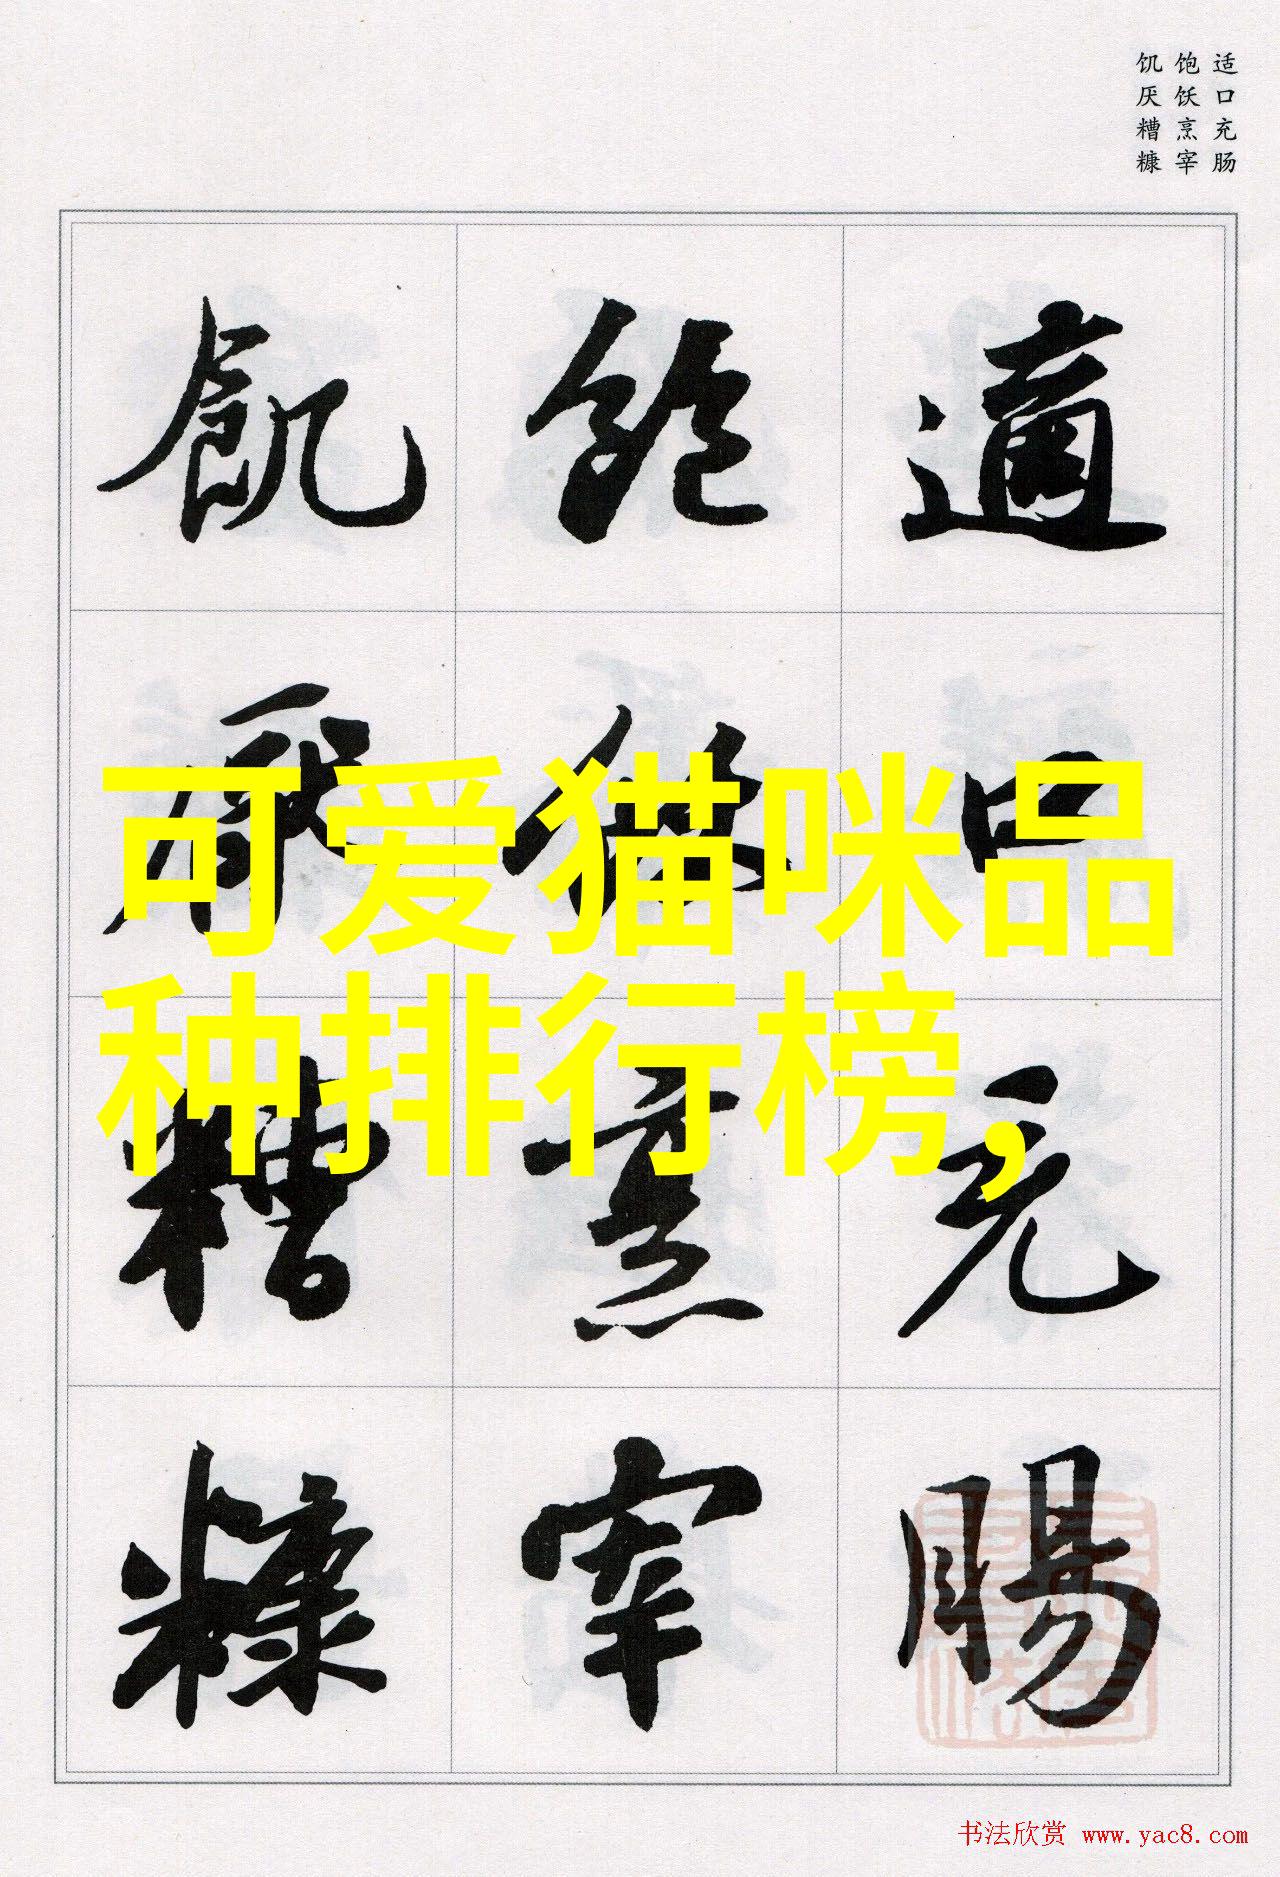 适口充肠
饱饫烹宰
饥厌糟糠
適口充腸
飽飫烹宰
飢厭糟糠
可爱猫咪品
种排行榜,
书法欣赏 www.yac8.com